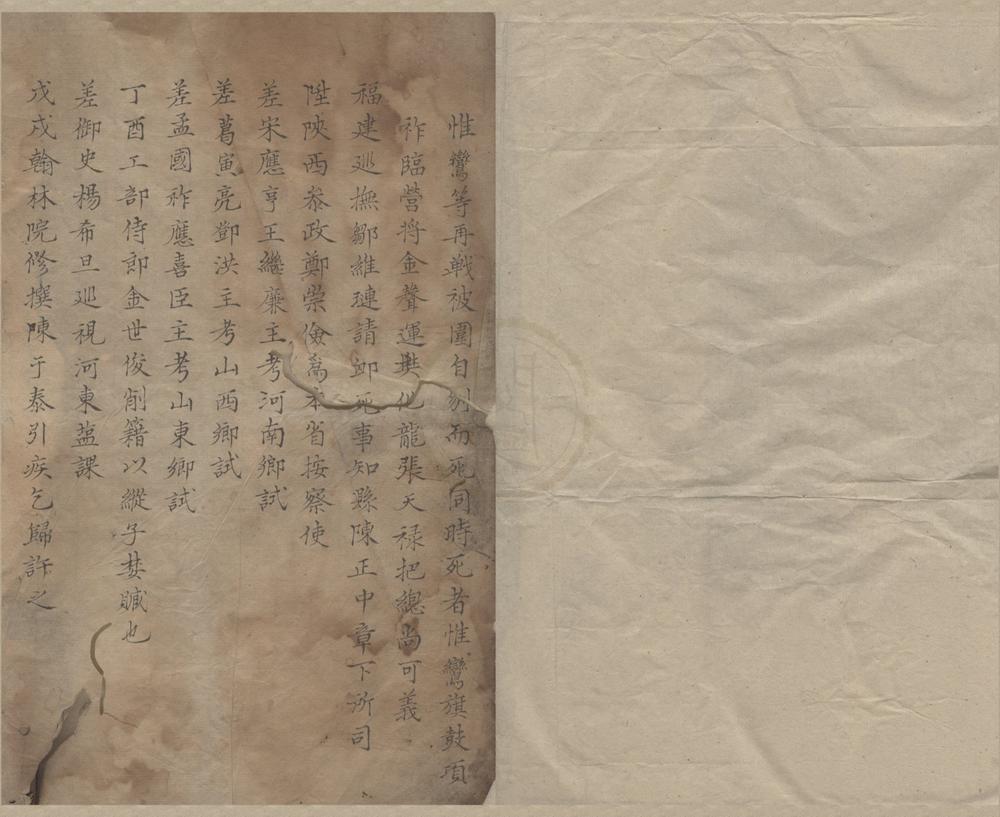 惟鸞等再戦被圍自刎而死同時死者惟鸞旗鼓項
祚臨營將金聲運樊化龍張天禄把總尚可義
福建廵撫鄒維璉請䘏死事知縣陳正中章下所司
陞陝西叅政鄭崇儉為本省按察使
差宋應亨王繼廉主考河南鄉試
差葛寅亮鄧洪主考山西鄉試
差孟國祚應喜臣主考山東鄉試
丁酉工部侍郎金世俊削籍以縱子婪贓也
差御史楊希旦廵視河東塩課
戊戌翰林院修撰陳于泰引疾乞歸許之